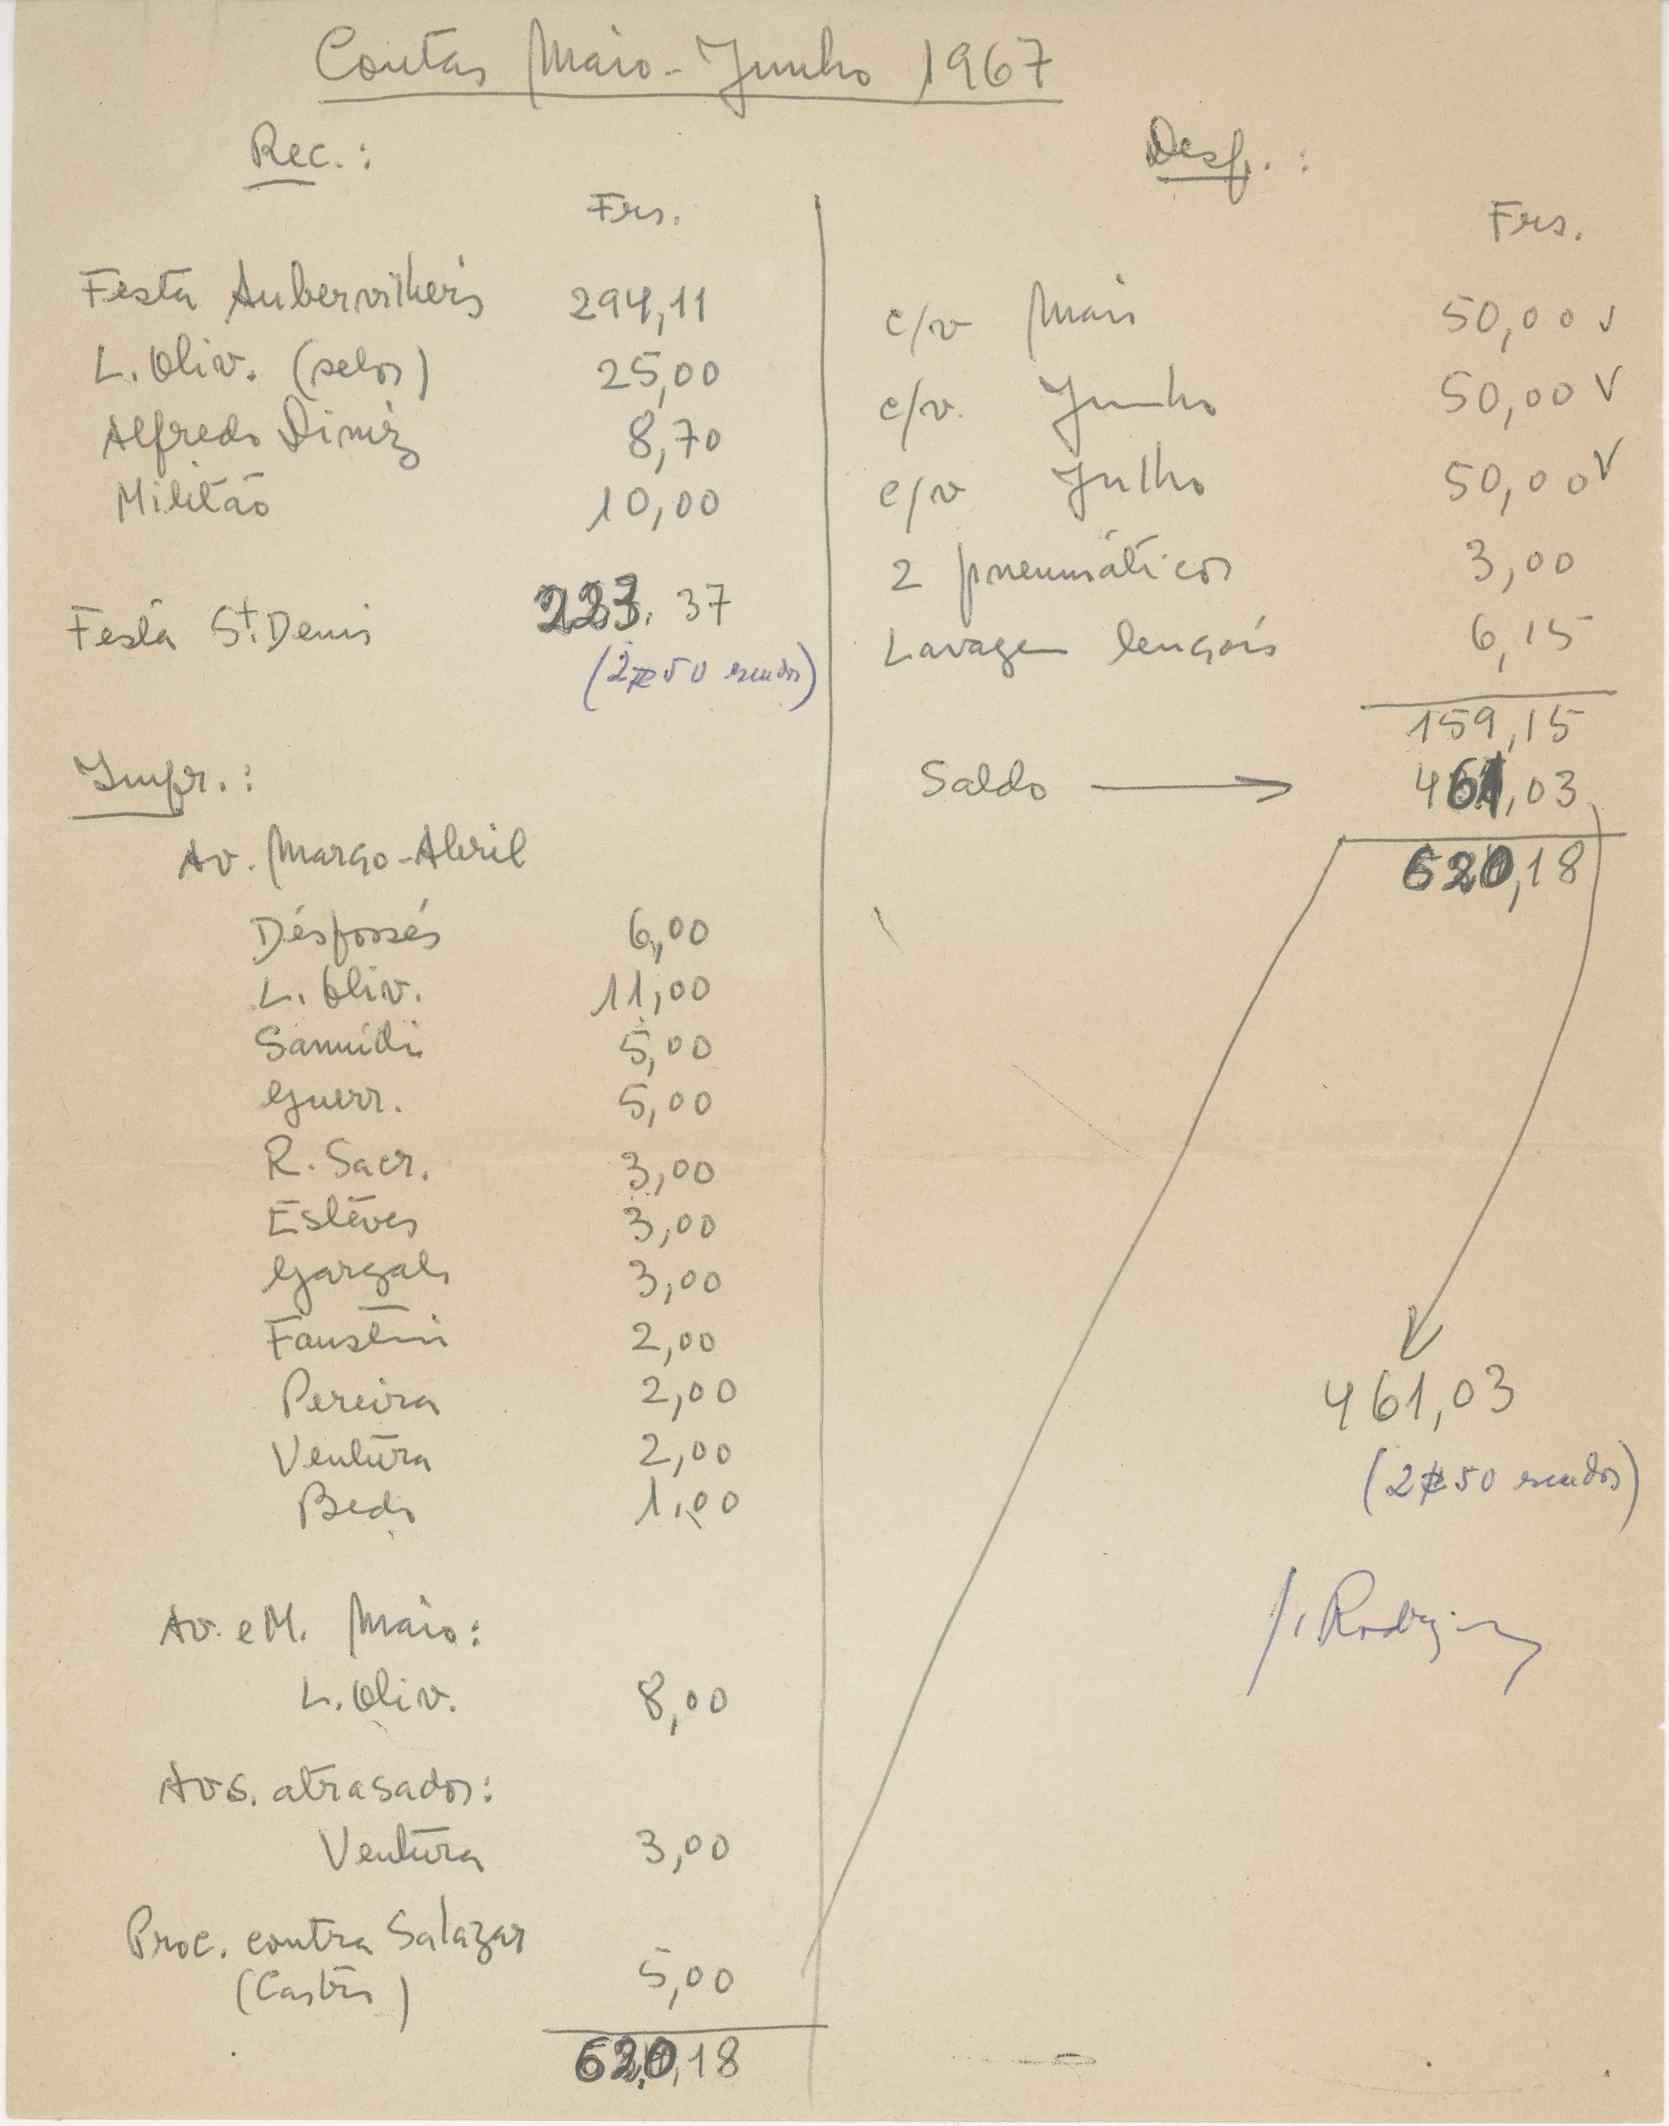 Contas Maio-Junho 1967
Rec.:
Frs.
Festa Aubervilliers 294,11
L. Oliv. (selos) 25,00
Alfredo Diniz 8,70
Militão 10,00
Festa St. Denis 223.37
(2x50 escudos)
Impr.:
Av. Março-Abril
Désfossés 6,00
L. Oliv. 11,00
5,00
Guerr. 5,00
R. Sacr. 3,00
Estêves 3,00
Gargalo 3,00
Faustini 2,00
Pereira 2,00
Ventura 2,00
Bedo 1,00
Av. e M. Maio:
L. Oliv. 8,00
Avs. atrasados:
Ventura 3,00
Proc. contra Salazar
(Castro) 5,00
620,18
Desp.:
Frs.
c/v Maio 50,00 v
c/v. Junho 50,00 v
c/v Julho 50,00 v
2 pneumáticos 3,00
Lavagem lençóis 6,15
159,15
Saldo → 461,03
620,18
461,03
(2x50 escudos)
J. Rodrigues